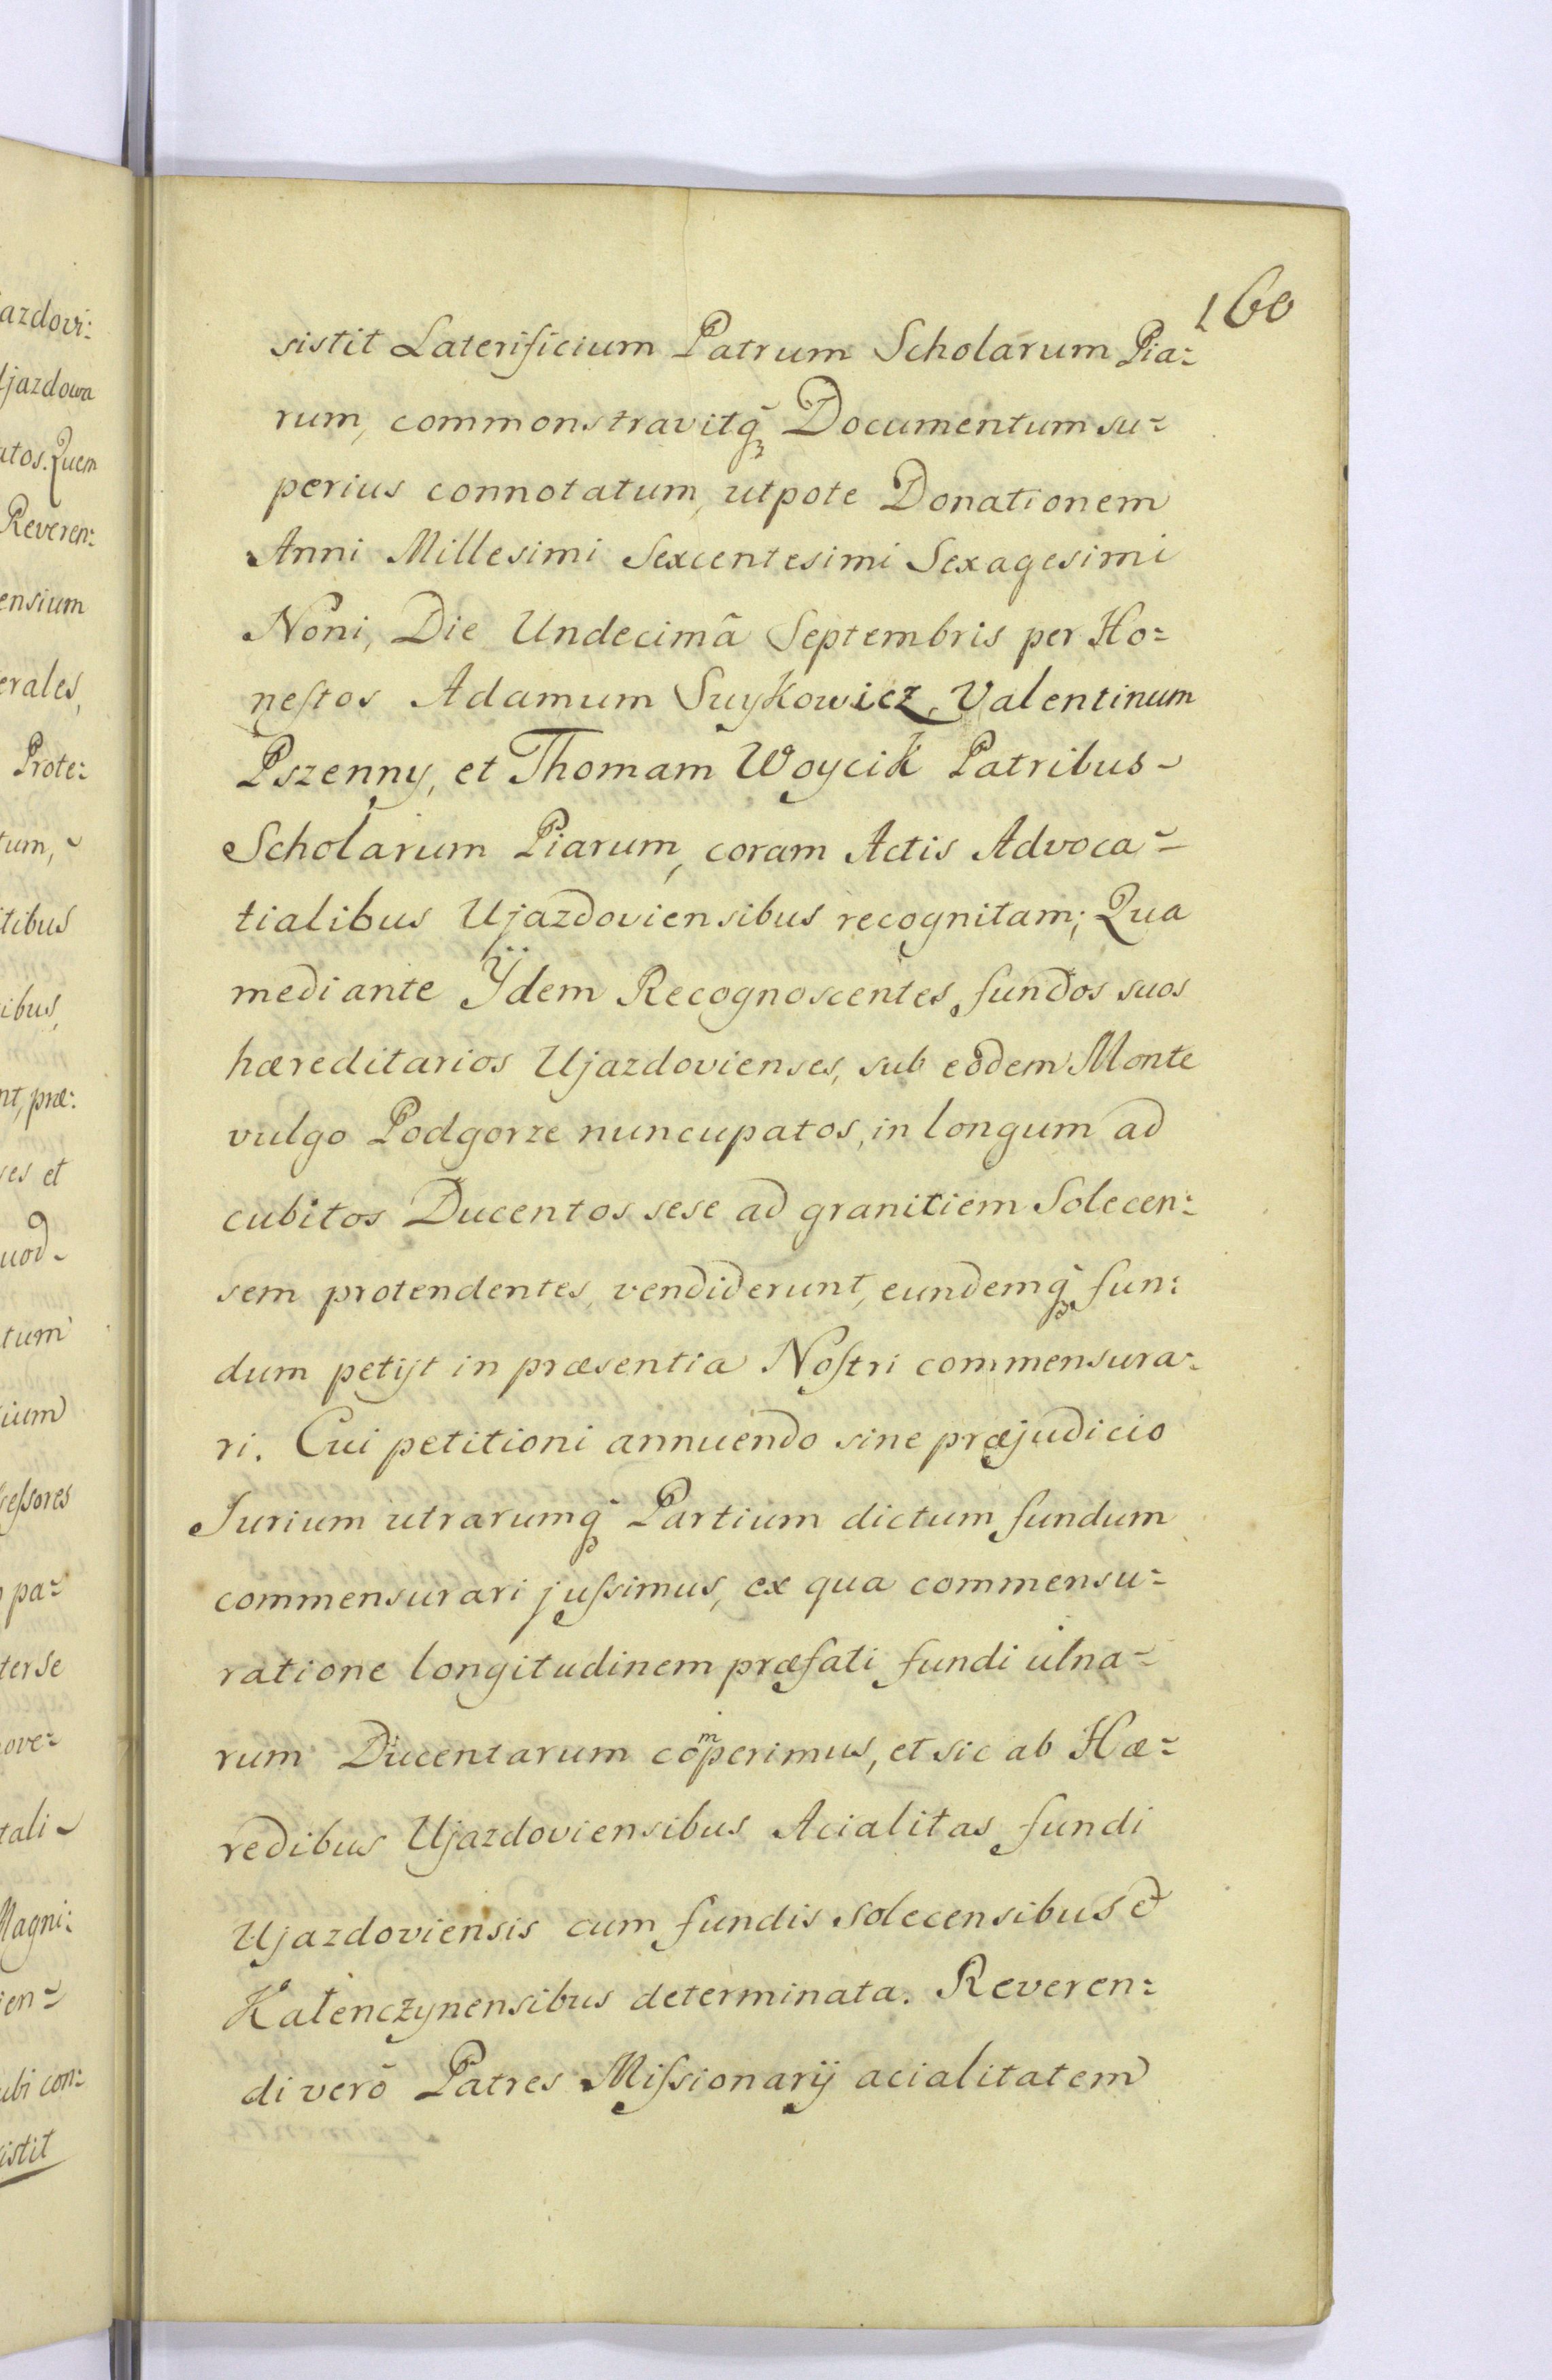 160
sistit Laterificium Patrum Scholarum Pia:
rum, commonstravitq̃ Documentum su:
perius connotatum, utpote Donationem
Anni Millesimi Sexcentesimi Sexagesimi
Noni, Die Undecimâ Septembris per Ho:
neſtos Adamum Suykowicz, Valentinum
Pszenny, et Thomam Woycik Patribus
Scholarum Piarum, coram Actis Advoca:
tialibus Ujazdoviensibus recognitam; Qua
mediante Ÿdem Recognoscentes fundos suos
hæreditarios Ujazdovienses, sub eodem Monte
vulgo Podgorze nuncupatos, in longum ad
cubitos Ducentos sese ad granitiem Solecen:
sem protendentes, vendiderunt, eundemq̃ fun:
dum petijt in præsentia Noſtri commensura:
ri. Cui petitioni annuendo sine præjudicio
Jurium utrarumq̃ Partium dictum fundum
commensurari juſsimus, ex qua commensu:
ratione longitudinem præfati fundi ulna:
rum Ducentarum comperimus, et sic ab Hæ:
redibus Ujazdoviensibus Acialitas fundi
Ujazdoviensis cum fundis Solecensibus &
Kalenczynensibus determinata. Reveren:
di verò Patres Miſsionarij acialitatem
azdovi:
Ujazdowa
atos. Quem
Reveren:
ensium
erales,
Prote:
tum,
tibus
ibus,
nt, præ:
res et
uod
tum
ium
ceſsores
pa:
ter se
ove:
tali
Magni:
ien:
ubi con:
sistit